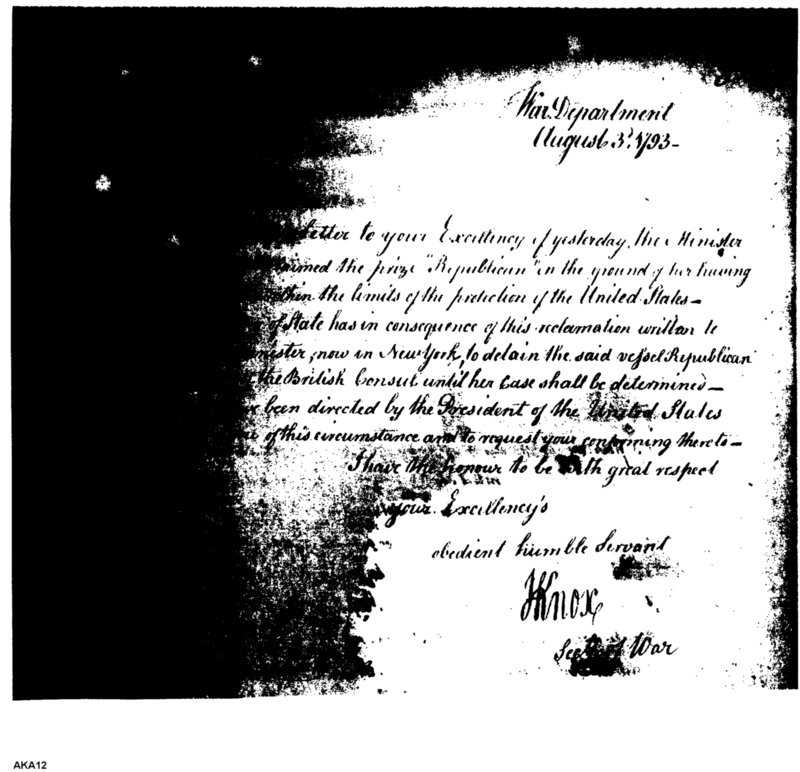 War Department
August 3d. 1793-
Letter to your Excellency of yesterday, the Minister
the prize "Republican" on the ground of her having
within the limits of the protection of the United States-
of State has in consequence of this reclamation written to
now in New York, to detain the said vessel Republican
the British Consul until her Case shall be determined-
been directed by the President of the United States
of this circumstance and to request your conforming thereto-
I have the honour to be with great respect
your Excellency's
obedient humble Servant
HKnox
Secy of War
AKA12